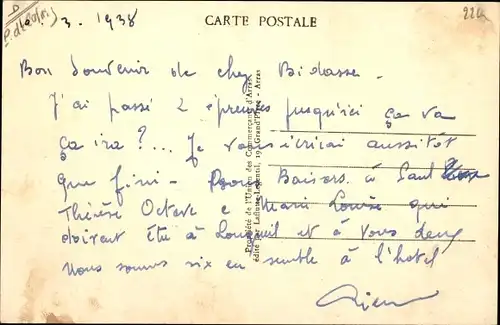 3. 1938
CARTE POSTALE
Bon Souvenir de chez Bidasse -
J'ai passé 2 épreuves jusqu'ici ça va
ça ira ?... Je vous écrirai aussitôt
que fini - Bons Baisers à Paul
Thérèse Octave e Marie Louise qui
doivent être à et à vous deux
Nous sommes six en semble à l'hotel
Propriété de l'Union des Commerçants d'Arras
édité par Laflutte-Legentil, 19, Grand'Place - Arras